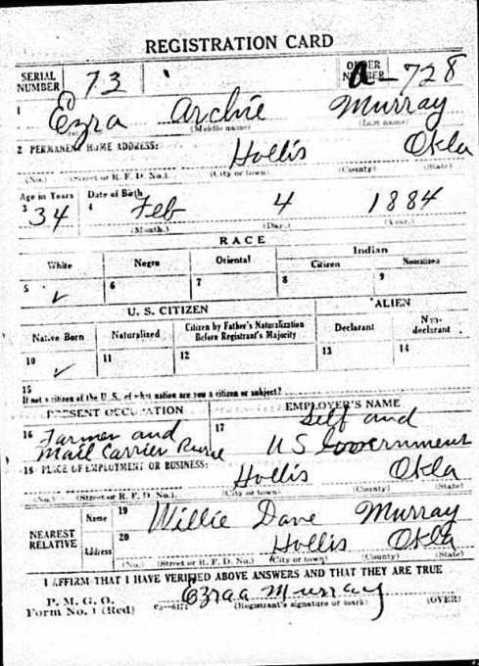 REGISTRATION CARD
SERIAL NUMBER 73 ORDER NUMBER A-728
1 Ezra Archie Murray
(Middle name) (Last name)
2 PERMANENT HOME ADDRESS: Hollis Okla
(No.) (Street or R. F. D. No.) (City or town) (County) (State)
Age in Years Date of Birth
3 34 4 Feb 4 1884
(Month.) (Day.) (Year.)
RACE
White Negro Oriental Indian
Citizen Noncitizen
5 ✓ 6 7 8 9
U. S. CITIZEN ALIEN
Native Born Naturalized Citizen by Father's Naturalization Before Registrant's Majority Declarant Non-declarant
10 ✓ 11 12 13 14
15
If not a citizen of the U. S., of what nation are you a citizen or subject?
PRESENT OCCUPATION EMPLOYER'S NAME
16 Farmer and Mail Carrier Rural 17 Self and U S Government
18 PLACE OF EMPLOYMENT OR BUSINESS: Hollis Okla
(No.) (Street or R. F. D. No.) (City or town) (County) (State)
NEAREST RELATIVE
Name 19 Willie Dave Murray
Address 20 Hollis Okla
(No.) (Street or R. F. D. No.) (City or town) (County) (State)
I AFFIRM THAT I HAVE VERIFIED ABOVE ANSWERS AND THAT THEY ARE TRUE
P. M. G. O.
Form No. 1 (Red) Ezra a Murray
(Registrant's signature or mark) (OVER)